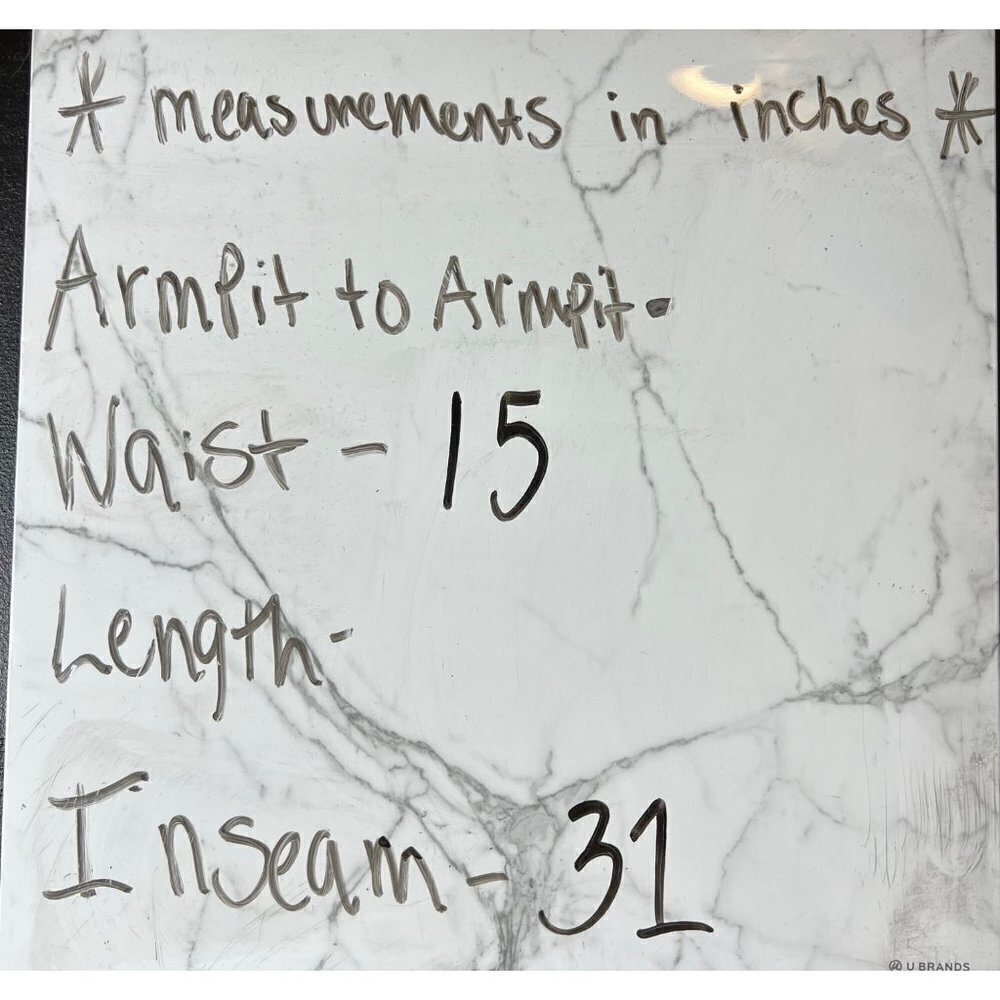 * measurements in inches *
Armpit to Armpit-
Waist - 15
Length-
Inseam - 31
U BRANDS